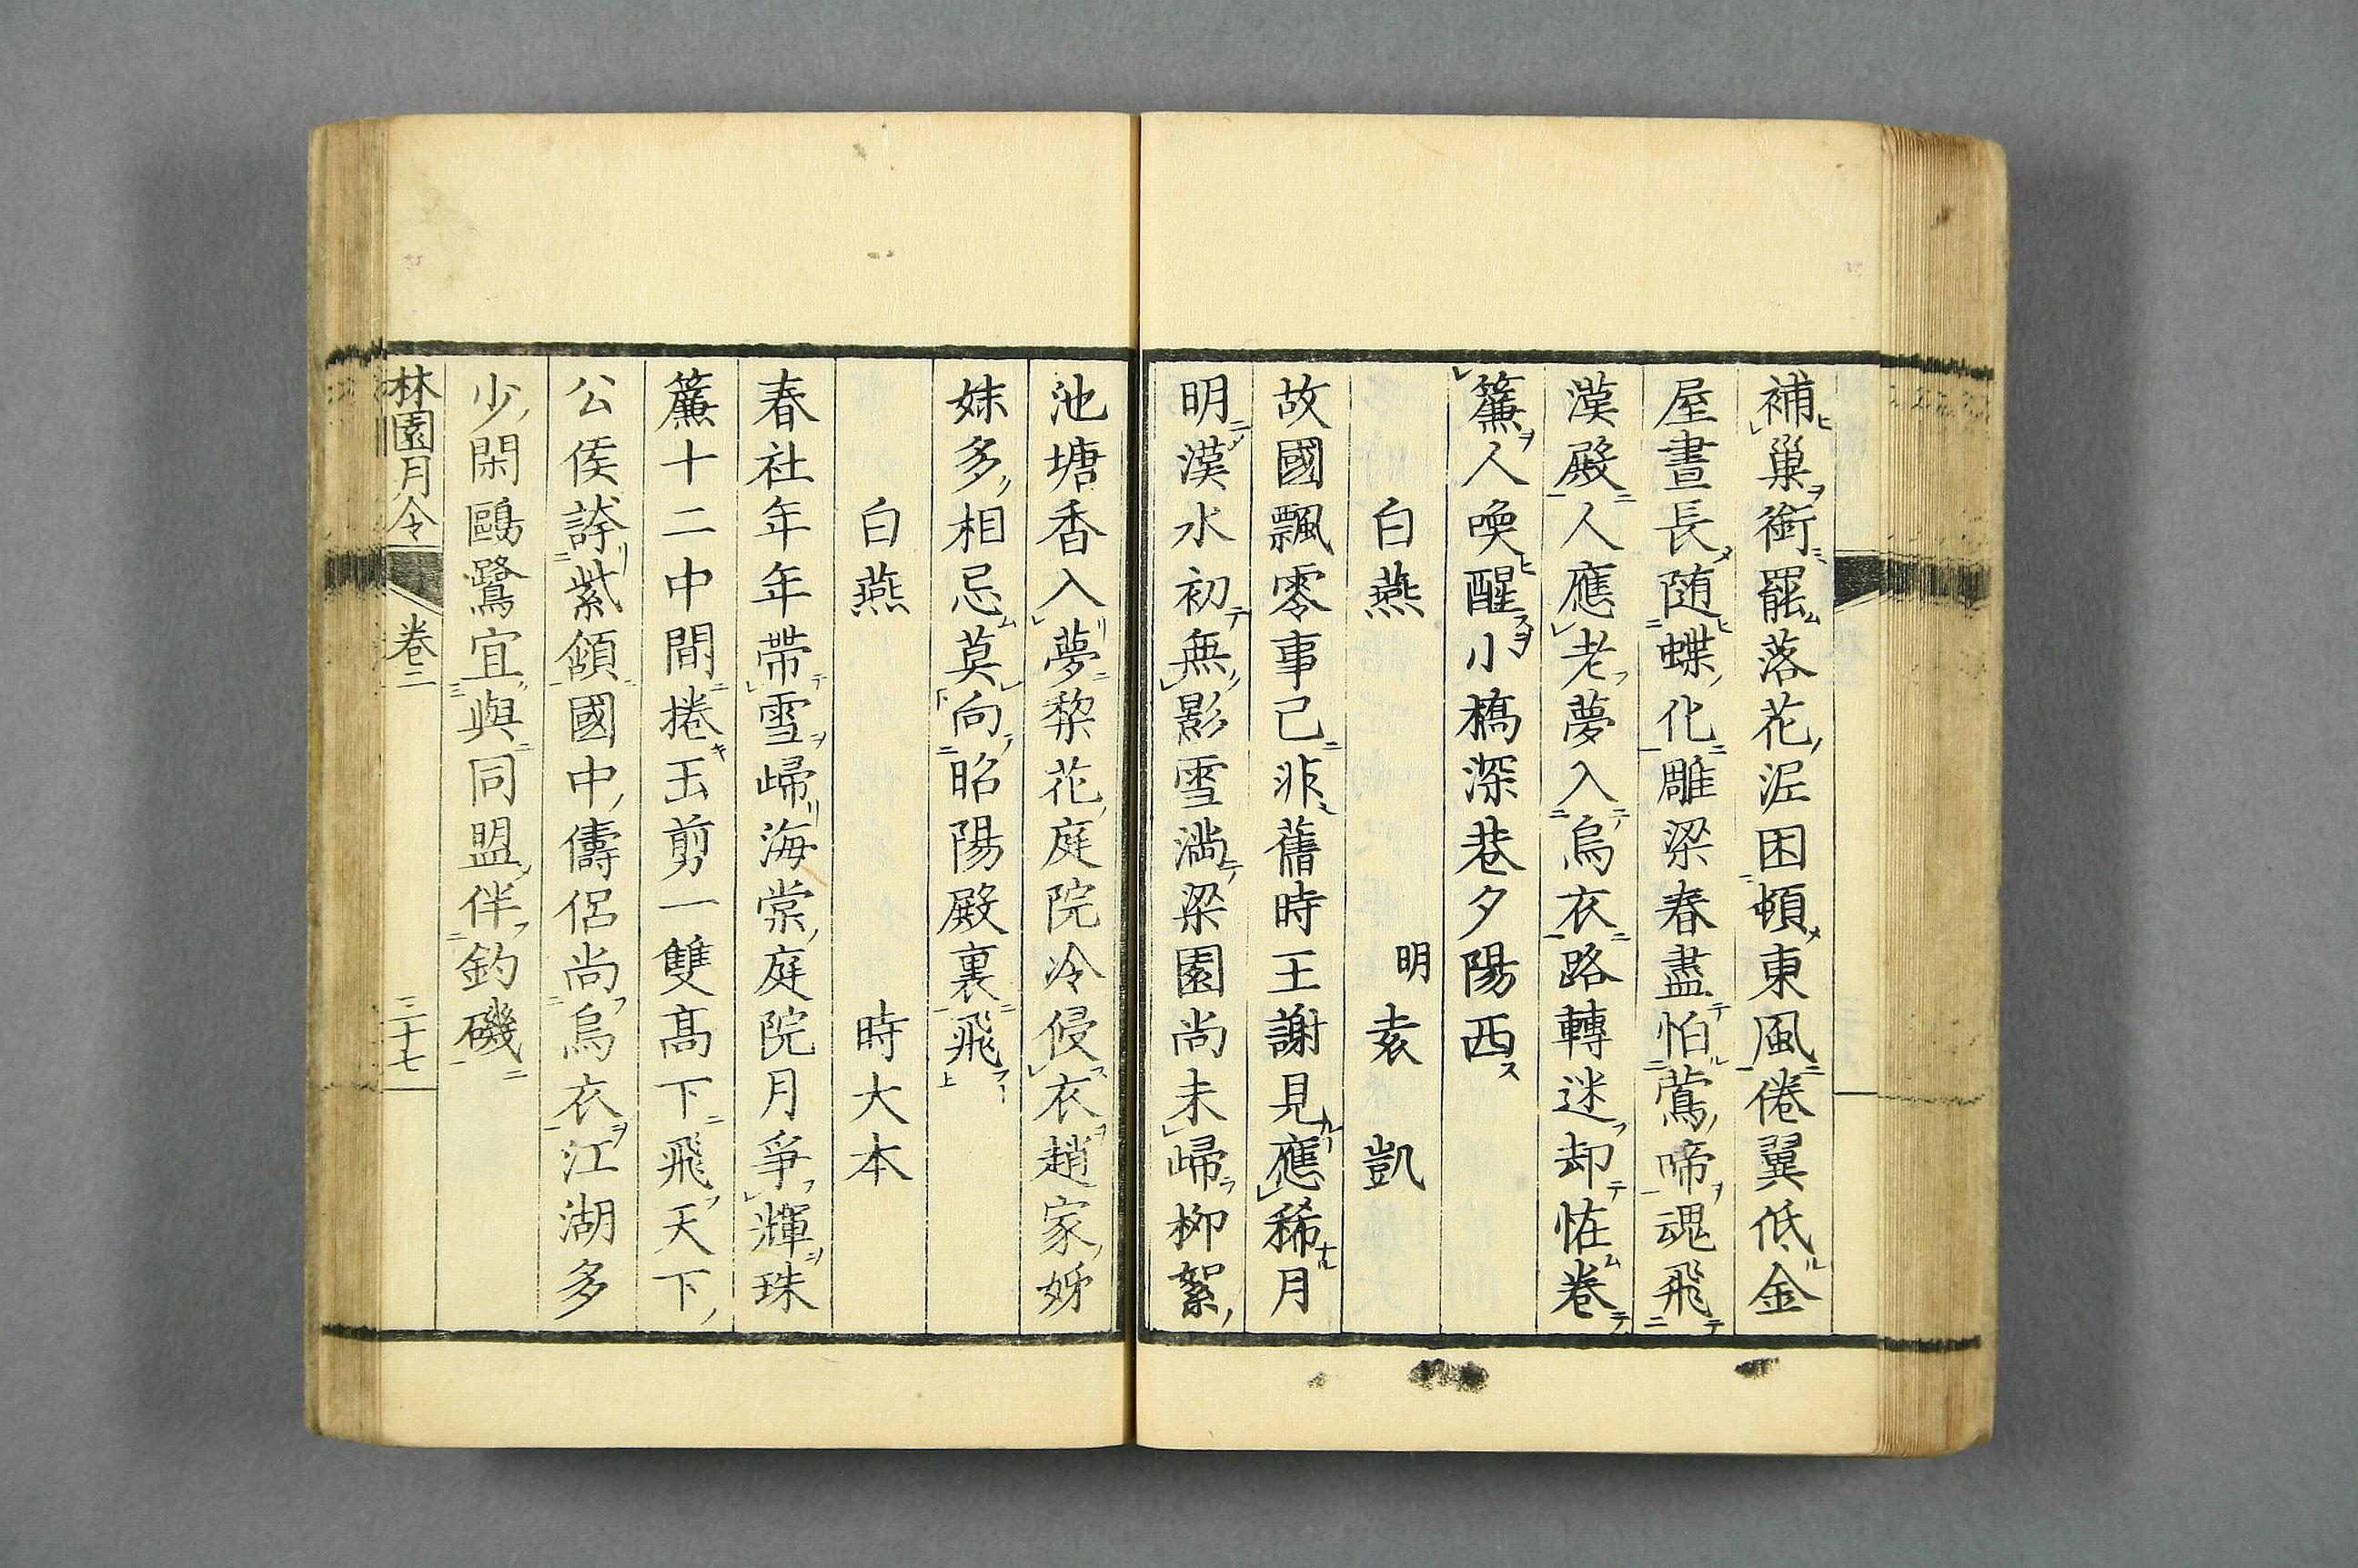 補巢銜罷落花泥困頓東風倦翼低金
屋晝長随蝶化雕梁春盡怕鶯啼魂飛
漢殿人應老夢入烏衣路轉迷却恠卷
簾人喚醒小橋深巷夕陽西
白燕 明 袁凱
故國飄零事已非舊時王謝見應稀月
明漢水初無影雪滿梁園尚未歸柳絮
池塘香入夢棃花庭院冷侵衣趙家姊
妹多相忌莫向昭陽殿裏飛
白燕 時大本
春社年年帶雪歸海棠庭院月爭輝珠
簾十二中間捲玉剪一雙高下飛天下
公侯誇紫頷國中儔侶尚烏衣江湖多
少閑鷗鷺宜與同盟伴釣磯
林園月令 卷二 三十七